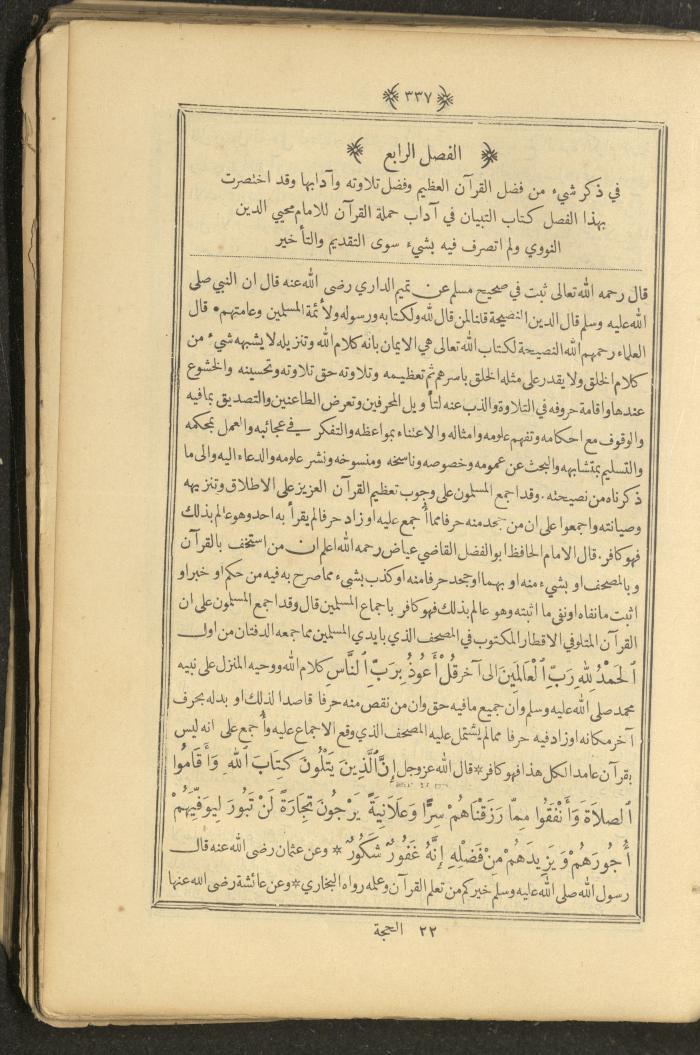 ٣٣٧
الفصل الرابع
في ذكر شيء من فضل القرآن العظيم وفضل تلاوته وآدابها وقد اختصرت
بهذا الفصل كتاب التبيان في آداب حملة القرآن للامام محيي الدين
النووي ولم اتصرف فيه بشيء سوى التقديم والتأخير
قال رحمه الله تعالى ثبت في صحيح مسلم عن تميم الداري رضى الله عنه قال ان النبي صلى
الله عليه وسلم قال الدين النصيحة قلنا لمن قال لله ولكتابه ورسوله ولأئمة المسلمين وعامتهم • قال
العلماء رحمهم الله النصيحة لكتاب الله تعالى هي الايمان بانه كلام الله وتنزيله لا يشبهه شيء من
كلام الخلق ولا يقدر على مثله الخلق باسرهم ثم تعظيمه وتلاوته حق تلاوته وتحسينه والخشوع
عندها واقامة حروفه في التلاوة والذب عنه لتأويل المحرفين وتعرض الطاعنين والتصديق بما فيه
والوقوف مع احكامه وتفهم علومه وامثاله والاعتناء بمواعظه والتفكر في عجائبه والعمل بمحكمه
والتسليم بمتشابهه والبحث عن عمومه وخصوصه وناسخه ومنسوخه ونشر علومه والدعاء اليه والى ما
ذكرناه من نصيحته . وقد اجمع المسلمون على وجوب تعظيم القرآن العزيز على الاطلاق وتنزيهه
وصيانته واجمعوا على ان من جحد منه حرفا مما أجمع عليه او زاد حرفا لم يقرأ به احد وهو عالم بذلك
فهو كافر . قال الامام الحافظ ابو الفضل القاضي عياض رحمه الله اعلم ان من استخف بالقرآن
او بالمصحف او بشيء منه او بهما او جحد حرفا منه او كذب بشيء مما صرح به فيه من حكم او خبر او
اثبت ما نفاه او نفى ما اثبته وهو عالم بذلك فهو كافر باجماع المسلمين قال وقد اجمع المسلمون على ان
القرآن المتلو في الاقطار المكتوب في المصحف الذي بايدي المسلمين مما جمعه الدفتان من اول
اَلْحَمْدُ لِلّٰهِ رَبِّ اَلْعَالَمِينَ الى آخر قُلْ أَعُوذُ بِرَبِّ اَلنَّاسِ كلام الله ووحيه المنزل على نبيه
محمد صلى الله عليه وسلم وان جميع ما فيه حق وان من نقص منه حرفا قاصدا لذلك او بدله بحرف
آخر مكانه او زاد فيه حرفا مما لم يشتمل عليه المصحف الذي وقع الاجماع عليه وأجمع على انه ليس
بقرآن عامدا لكل هذا فهو كافر * قال الله عز وجل إِنَّ اَلَّذِينَ يَتْلُونَ كِتَابَ اَللّٰهِ وَأَقَامُوا
اَلصلَاةَ وَأَنْفَقُوا مِمَّا رَزَقْنَاهُمْ سِرًّا وَعَلَانِيَةً يَرْجُونَ تِجَارَةً لَنْ تَبُورَ لِيُوَفِّيَهُمْ
أُجُورَهُمْ وَيَزِيدَهُمْ مِنْ فَضْلِهِ إِنَّهُ غَفُورٌ شَكُورٌ * وعن عثمان رضى الله عنه قال
رسول الله صلى الله عليه وسلم خيركم من تعلم القرآن وعلمه رواه البخاري * وعن عائشة رضى الله عنها
٢٢ الحجة